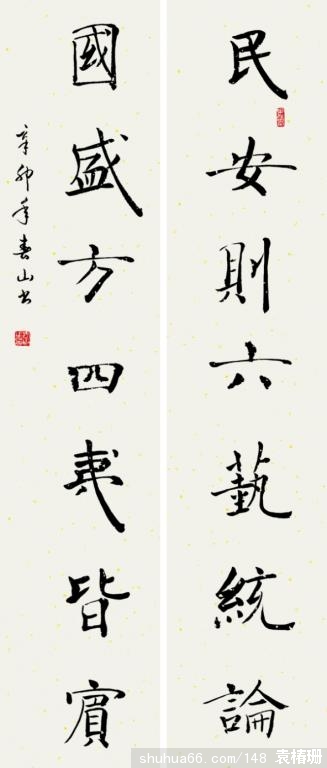 民安則六藝統論
國盛方四夷皆賓
辛卯年春山书
shuhua66.com/148 袁椿珊